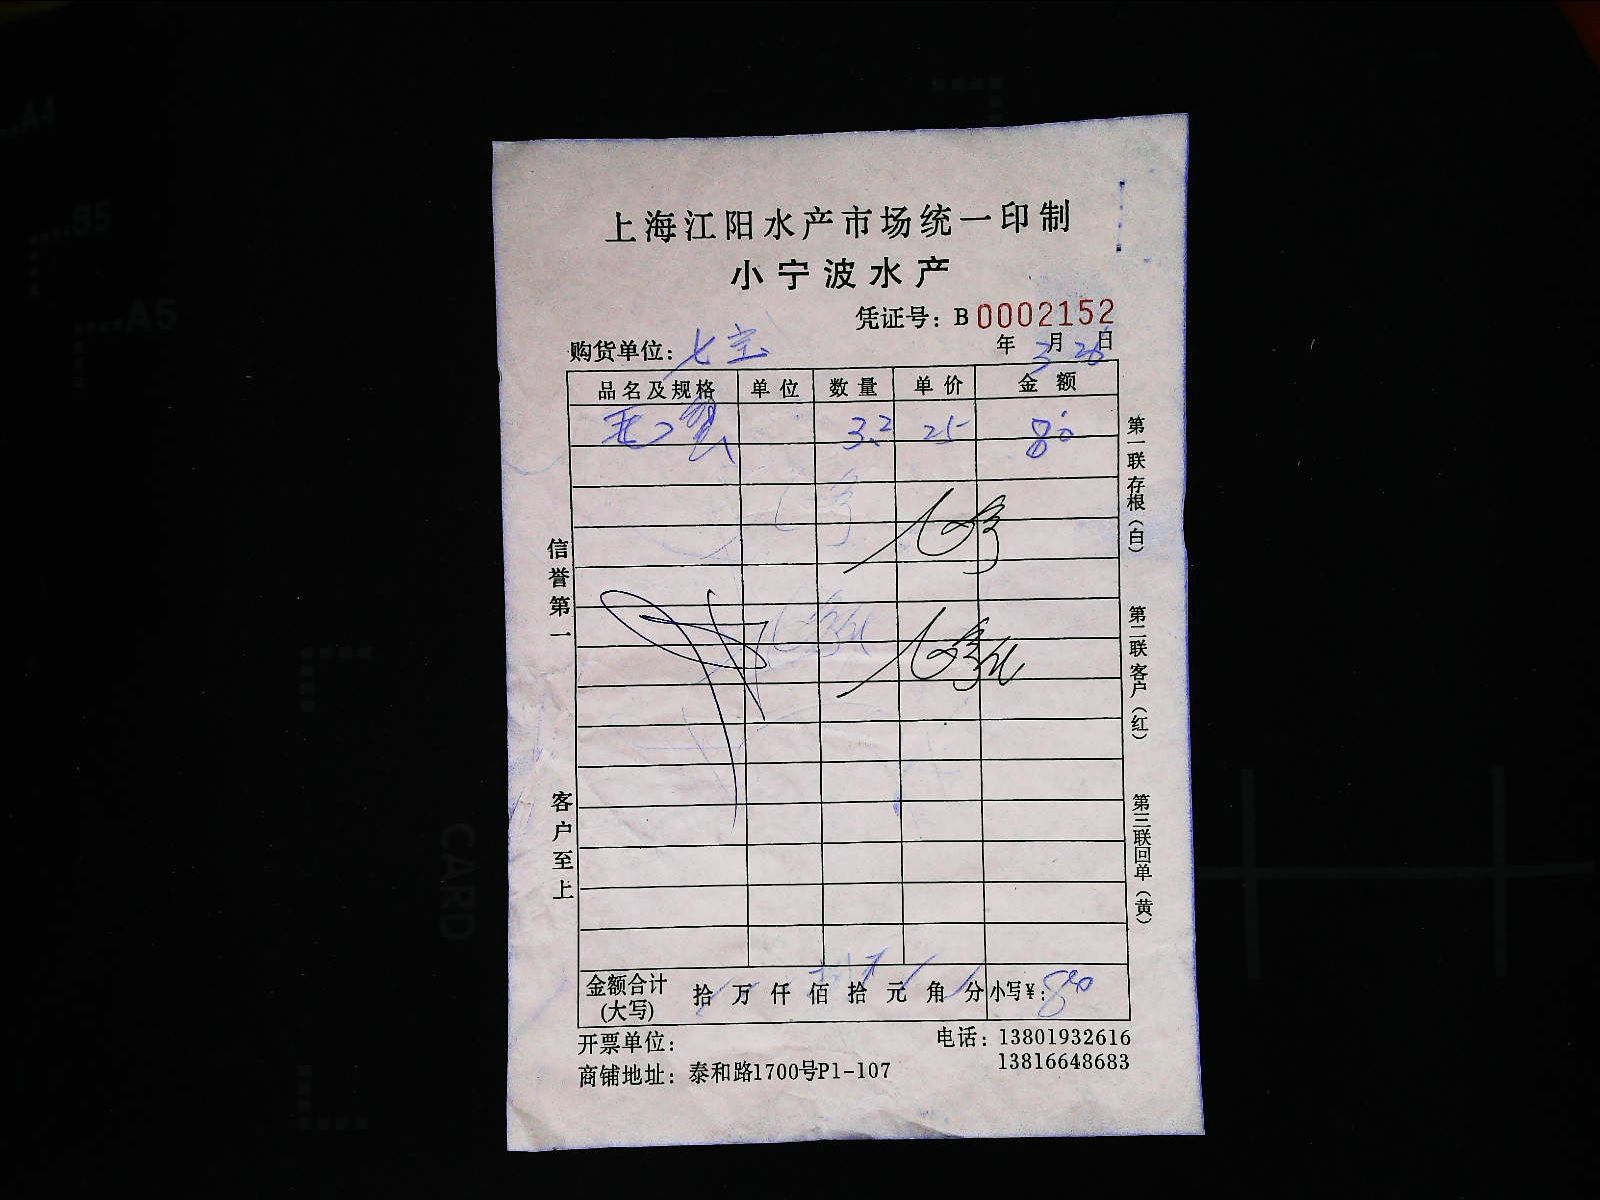 上海江阳水产市场统一印制
小宁波水产
凭证号：B 0002152
购货单位：七宝 年3月26日
品名及规格 单位 数量 单价 金额
3.2 25 80
第一联存根（白）
第二联客户（红）
第三联回单（黄）
信誉第一
客户至上
金额合计(大写) 拾万仟佰拾元角分 小写¥：80
开票单位： 电话：13801932616
13816648683
商铺地址：泰和路1700号P1-107
A4
B5
A5
CARD